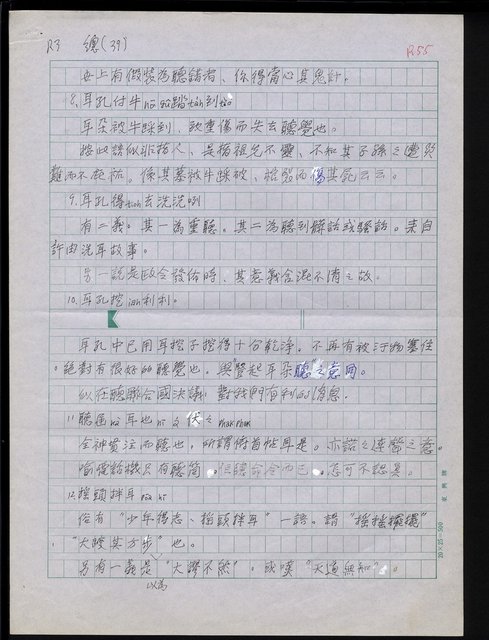 R3 總(39)
P.55
世上有假裝為聽諸者、你得當心其鬼計。
8.耳孔付牛 踏 到
耳朵被牛踩到、致重傷而失去聽覺也。
按此語似非指人、是指祖兄不靈、不知其子孫之遭災
難而不庇祐。係其墓被牛踩破、棺 而傷其屍云云。
9.耳孔得 去洗洗咧
有二義。其一為重聽。其二為聽到髒話或騷話。來自
許由洗耳故事。
另一說是政令發佈時、其意義含混不清之故。
10.耳孔挖 利利。
耳孔中已用耳挖子挖得十分乾淨。不再有被汙物塞住
。絕對有很好的聽覺也。與“豎起耳朵聽”之意同。
似在聽聯合國決議 對我們有利的消息。
11.聽 耳也 伏之 phak phak
全神貫注而聽也、所謂俯首帖耳是。亦諾之連聲之意。
喻電話機只有聽筒。但聽命令而已。怎可不認真。
12.搖頭拌耳
俗有“少年得志、搖頭拌耳”一語。謂“搖搖擺擺”
、“大踱其方步”也。
另有一義是“大謬不然”。或嘆“天道無知”。
以為
20×25=500